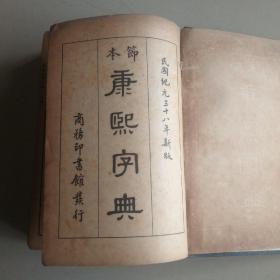 民國紀元三十八年新版
節本
康熙字典
商務印書館發行